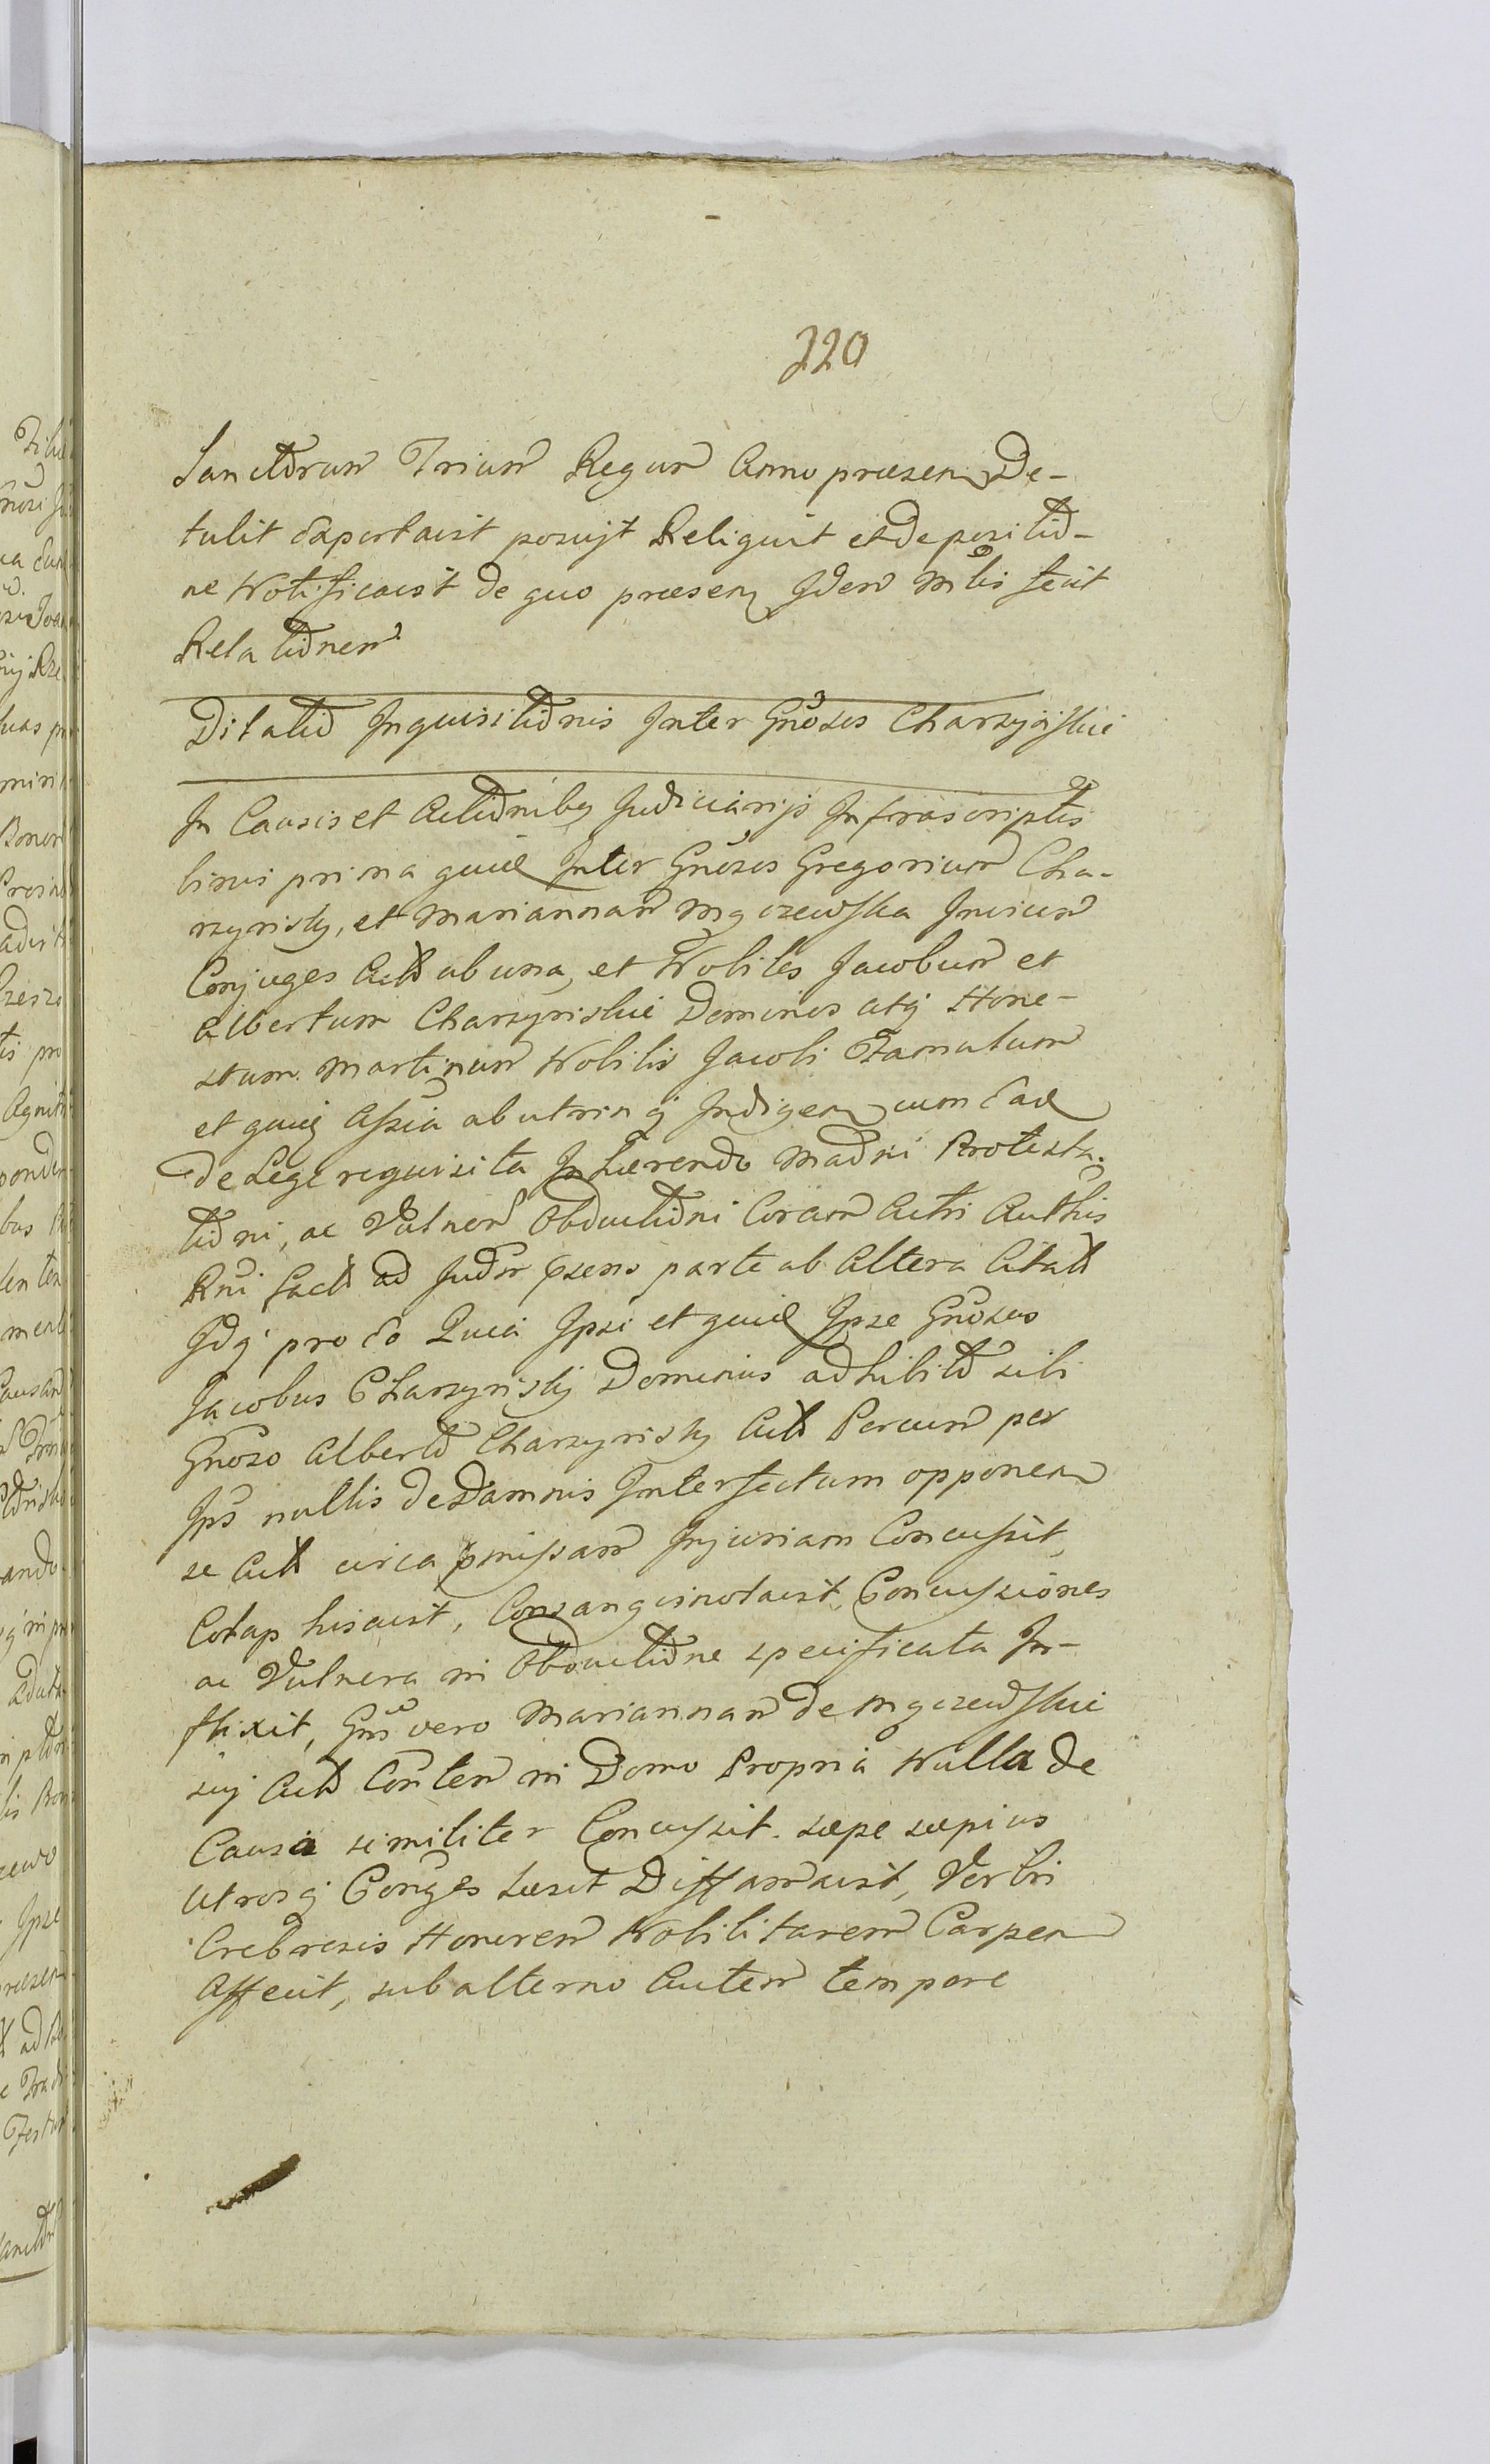 220
Sanctorum Trium Regum Anno praesen De-
tulit Exportavit posuit Reliquit et de positio-
ne Notificavit de quo praesen Idem Mtlis fecit
Relationem
Dilatio Inquisitionis Inter Gnosos Charzyńskie
In Causis et Actionibq Judiciarijs Infrascriptis
binis prima quid Inter Gnosos Gregorium Cha-
rzynisky, et Mariannam Mgczewska Invicem
Conjuges Act ab una, et Nobiles Jacobum et
Albertum Charzyniskie Dominos atq Hone-
stum Martinum Nobilis Jacobi Famulum
et quiq Assia ab utrinq Indigen cum Ead
de Lege requisita Inhaerendo Madni Protesta-
tioni, ac Vulner Obductioni Coram Actis Authis
Rni fact ad Judm psens parte ab Altera Citat
Idq pro Eo Quia Ipsi et quid Ipse Gnosus
Jacobus Charzynisky Dominus adhibito sibi
Gnoso Alberto Charzynisky Act Porcum per
Ips nullis de Damnis Interfectum opponen
se Act circa pmissam Injuriam Concussit,
Colaphisavit, Consanguinolavit, Concussiones
ac Vulnera in Obductione specificata In-
flixit, Gnm vero Mariannam de Mgczewskie
sui Act Conten in Domo Propria Nulla de
Causa similiter Concussit saepe saepius
Utrosq Conges Laesit Diffamavit, Verbis
Crebrosis Honorem Nobilitarem Carpen
Affecit, subalterno Autem tempore